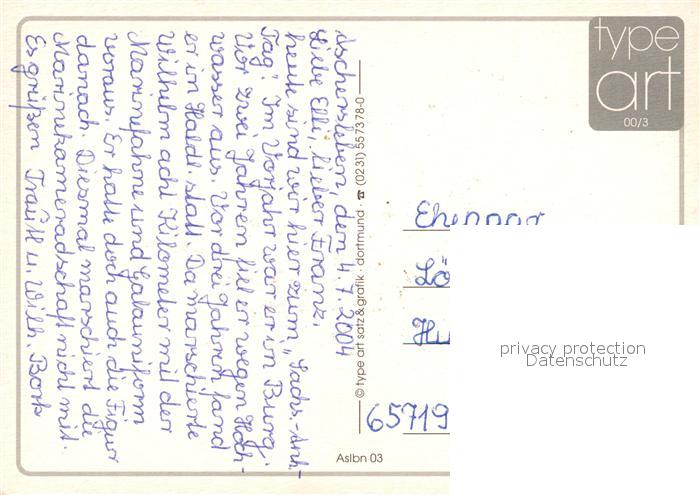 Aschersleben, den 4.7.2004
Liebe Elli, lieber Franz,
heute sind wir hier zum „Sachs.-Anh.-
Tag". Im Vorjahr war er in Burg.
Vor zwei Jahren fiel er wegen Hoch-
wasser aus. Vor drei Jahren fand
er in Haldl. statt. Da marschierte
Wilhelm acht Kilometer mit der
Marinefahne und Galauniform
voraus. Er hatte doch auch die Figur
danach. Diesmal marschiert die
Marinekameradschaft nicht mit.
Es grüßen Trautl u. Wilh. Bork
© type art satz & grafik · dortmund · ☎ (0231) 557378-0
type
art
00/3
Ehepaar
Lö
Hu
65719
privacy protection
Datenschutz
Aslbn 03